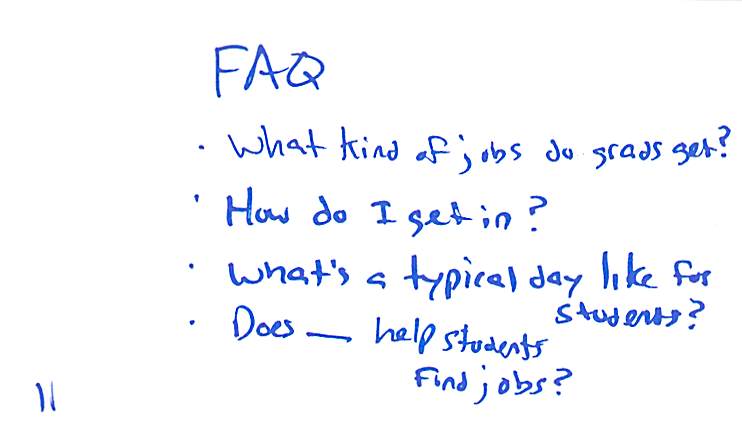 FAQ
· What kind of jobs do grads get?
· How do I get in?
· What's a typical day like for
students?
· Does — help students
find jobs?
11